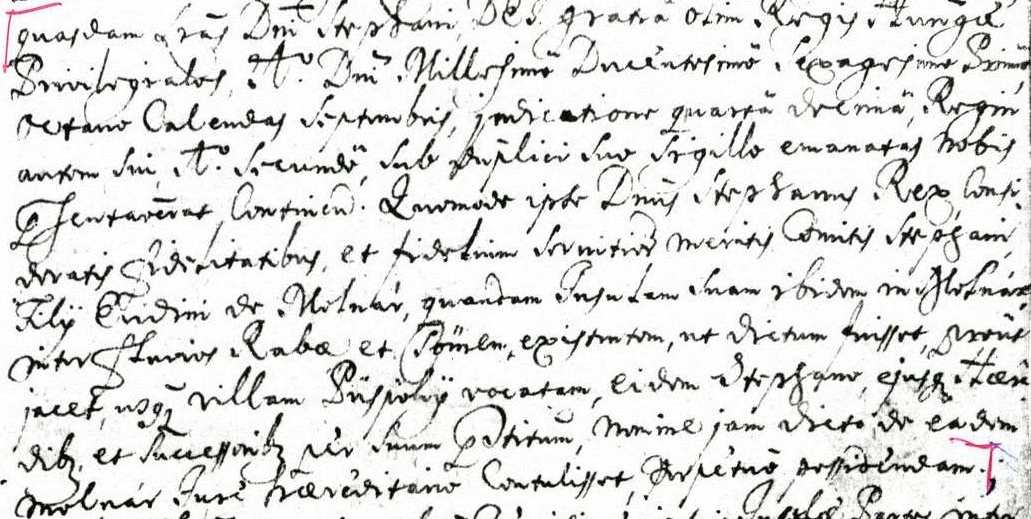 quasdam Lrās Dnī Stephani Dei gratia olim Regis Hungae
Privilegiales, A.º Dnī Millesimō Ducentesimō Sexagesimo Primō
octavo Calendas Septembris, indicatione quartā decimā, Regni
autem sui A.º Secundō, sub duplici suo Sigillo emanatas Nobis
Continen. Quomodo ipse Dnūs Stephanus Rex Consi
deratis fidelitatibus, et fidelium servitiorū meritis Comitis Stephani
Filij de Molnár, quandam Insulam suam ibidem in Molnár
inter fluvios Rabae et existentem, ut dictum fuisset, prout
jacet, usq villam Püspökÿ vocatam, eidem Stephano, ejusq Haere
dibq et Successoribq per suum nomine jam dicto, de eadem
Molnár Jure haereditario Contulisset, perpetuō possidendam.